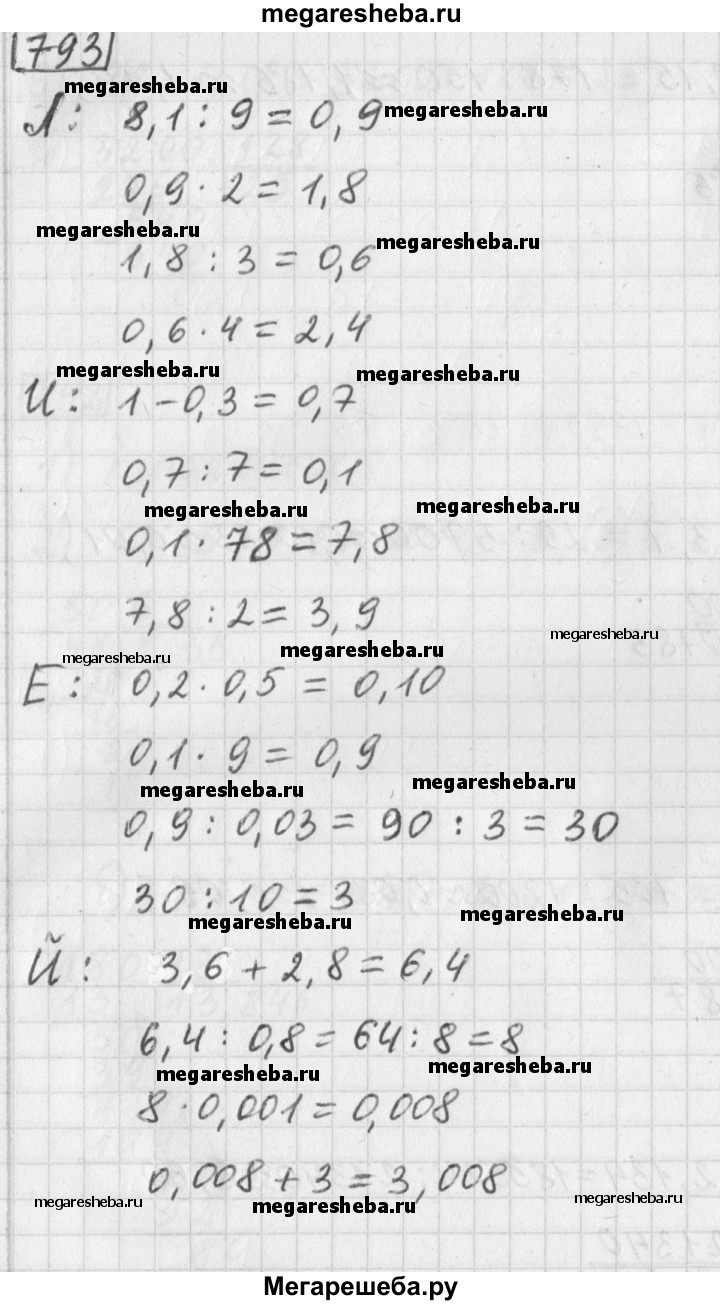 megaresheba.ru
793
megaresheba.ru
Л: 8,1 : 9 = 0,9 megaresheba.ru
0,9 · 2 = 1,8
megaresheba.ru megaresheba.ru
1,8 : 3 = 0,6
0,6 · 4 = 2,4
megaresheba.ru megaresheba.ru
И: 1 - 0,3 = 0,7
0,7 : 7 = 0,1
megaresheba.ru megaresheba.ru
0,1 · 78 = 7,8
7,8 : 2 = 3,9
megaresheba.ru
megaresheba.ru megaresheba.ru
Е: 0,2 · 0,5 = 0,10
0,1 · 9 = 0,9
megaresheba.ru megaresheba.ru
0,9 : 0,03 = 90 : 3 = 30
30 : 10 = 3
megaresheba.ru megaresheba.ru
Й: 3,6 + 2,8 = 6,4
6,4 : 0,8 = 64 : 8 = 8
megaresheba.ru megaresheba.ru
8 · 0,001 = 0,008
0,008 + 3 = 3,008
megaresheba.ru megaresheba.ru megaresheba.ru
Мегарешеба.ру